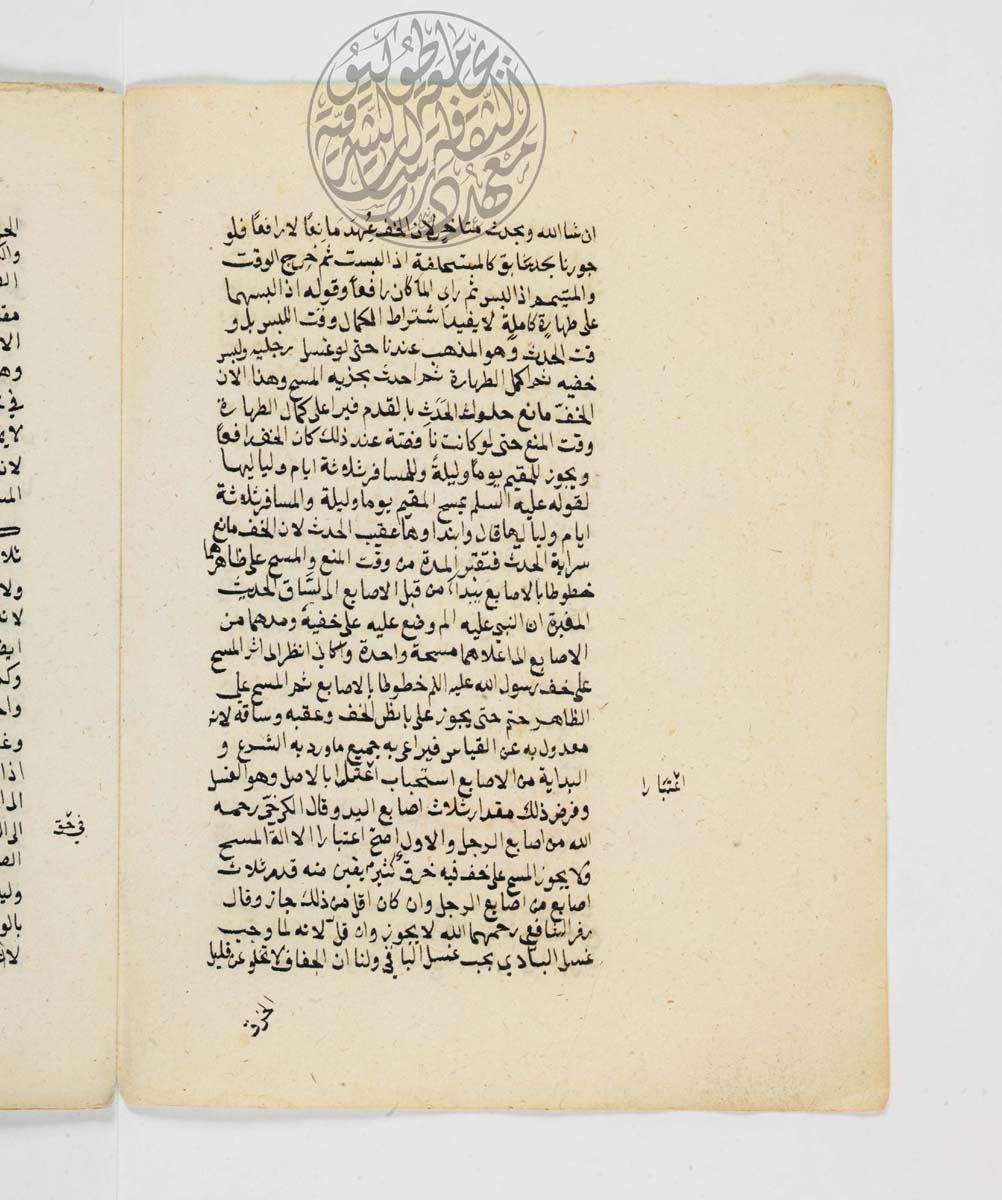 ان شا الله وبحدث متاخر لان الخف عُهِدَ مَانِعًا لا رافعًا فلو
جوزنا بحدث سابق كالمستحاضة اذا لبست ثم خرج الوقت
والمتيمم اذا لبس ثم راى الما كان رافعاً وقوله اذا لبسهما
على طهارة كاملة لا يفيد اشتراط الكمال وقت اللبس بل و
قت الحدث وهو المذهب عندنا حتى لو غسل رجليه ولبس
خفيه ثم اكمل الطهارة ثم احدث يجزيه المسح وهذا الان
الخفّ مانع حلول الحَدَثِ بالقدم فيراعى كمال الطهارة
وقت المنع حتى لو كانت ناقصة عند ذلك كان الخف رافعاً
ويجوز للمقيم يوماً وليلةً وللمسافر ثلاثة ايام ولياليها
لقوله عليه السلم يمسح المقيم يوما وليلة والمسافر ثلاثة
ايام ولياليها قال وابتداوها عقيب الحدث لان الخف مانع
سراية الحدث فتعتبر المدة من وقت المنع والمسح على ظاهرهما
خطوطا بالاصابع يبداء من قبل الاصابع الى السَّاق لحديث
المغيرة ان النبي عليه الم وضع عليه على خفيه ومدهما من
الاصابع الى اعلاهما مسحة واحدة وكاني انظر الى اثر المسح
على خف رسول الله عليه اللم خطوطا بالاصابع ثم المسح على
الظاهر حتم حتى يجوز على باطن الخف وعقبه وساقه لانه
معدول به عن القياس فيراعى به جميع ماورد به الشرع و
البداية من الاصابع استحباب اعتبارا بالاصل وهو الغسل
وفرض ذلك مقدار ثلاث اصابع اليد وقال الكرخى رحمه
الله من اصابع الرجل والاول اصحّ اعتبارا الالة المسح
ولا يجوز المسح على خف فيه خرق كثير يبين منه قدر ثلاث
اصابع من اصابع الرجل وان كان اقل من ذلك جاز وقال
زفر الشافعى رحمهما الله لا يجوز وان قلّ لانه لما وجب
غسل البادي يجب غسل الباقي ولنا ان الخفاف لا تخلو عن قليل
الخرق
اعتبارا
في حق